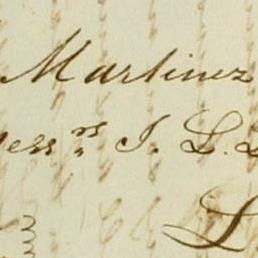 Martinez
ess.rs J. L. L
L